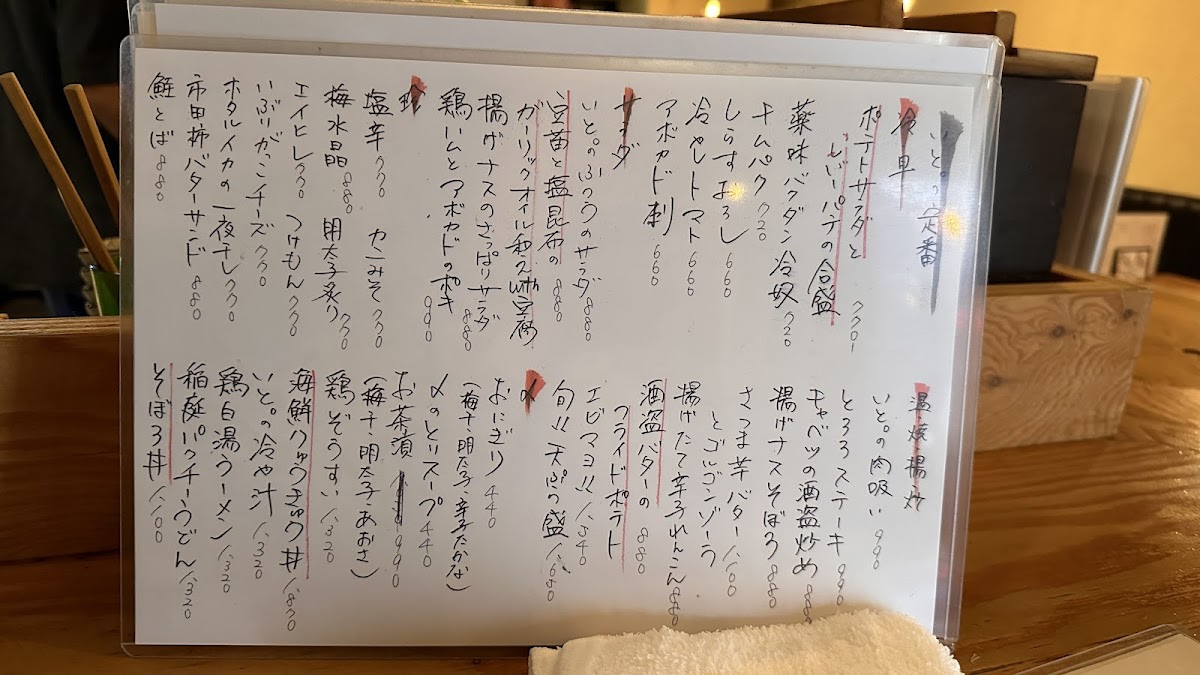 いと。の定番
冷・早
ポテトサラダと
レバーパテの合盛
薬味バクダン冷奴 720
ナムパク 720
しらすおろし 660
冷やしトマト 660
アボカド刺 660
サラダ
いと。のふつうのサラダ 880
豆苗と塩昆布の 880
ガーリックオイル和え with 豆腐
揚げナスのさっぱりサラダ 880
鶏ハムとアボカドのポキ 990
珍
塩辛 770 カニみそ 770
梅水晶 880 明太子炙り 770
エイヒレ 770 つけもん 770
いぶりがっこチーズ 770
ホタルイカの一夜干し 770
市田柿バターサンド 880
鮭とば 880
温・焼・揚・炒
いと。の肉吸い 990
とろろステーキ 990
キャベツの酒盗炒め
揚げナスそぼろ 880
さつま芋バター 1,100
とゴルゴンゾーラ
揚げたて辛子れんこん 880
酒盗バターの 880
フライドポテト
エビマヨ!! 1,540
旬!! 天ぷら盛 1,650
〆
おにぎり 440
(梅干・明太子・辛子たかな)
〆のとりスープ 440
お茶漬 990
(梅干・明太子・あおさ)
鶏ぞうすい 1,320
海鮮りゅうきゅう丼 1,870
いと。の冷や汁 1,320
鶏白湯ラーメン 1,320
稲庭パクチーうどん 1,320
そぼろ丼 1,100